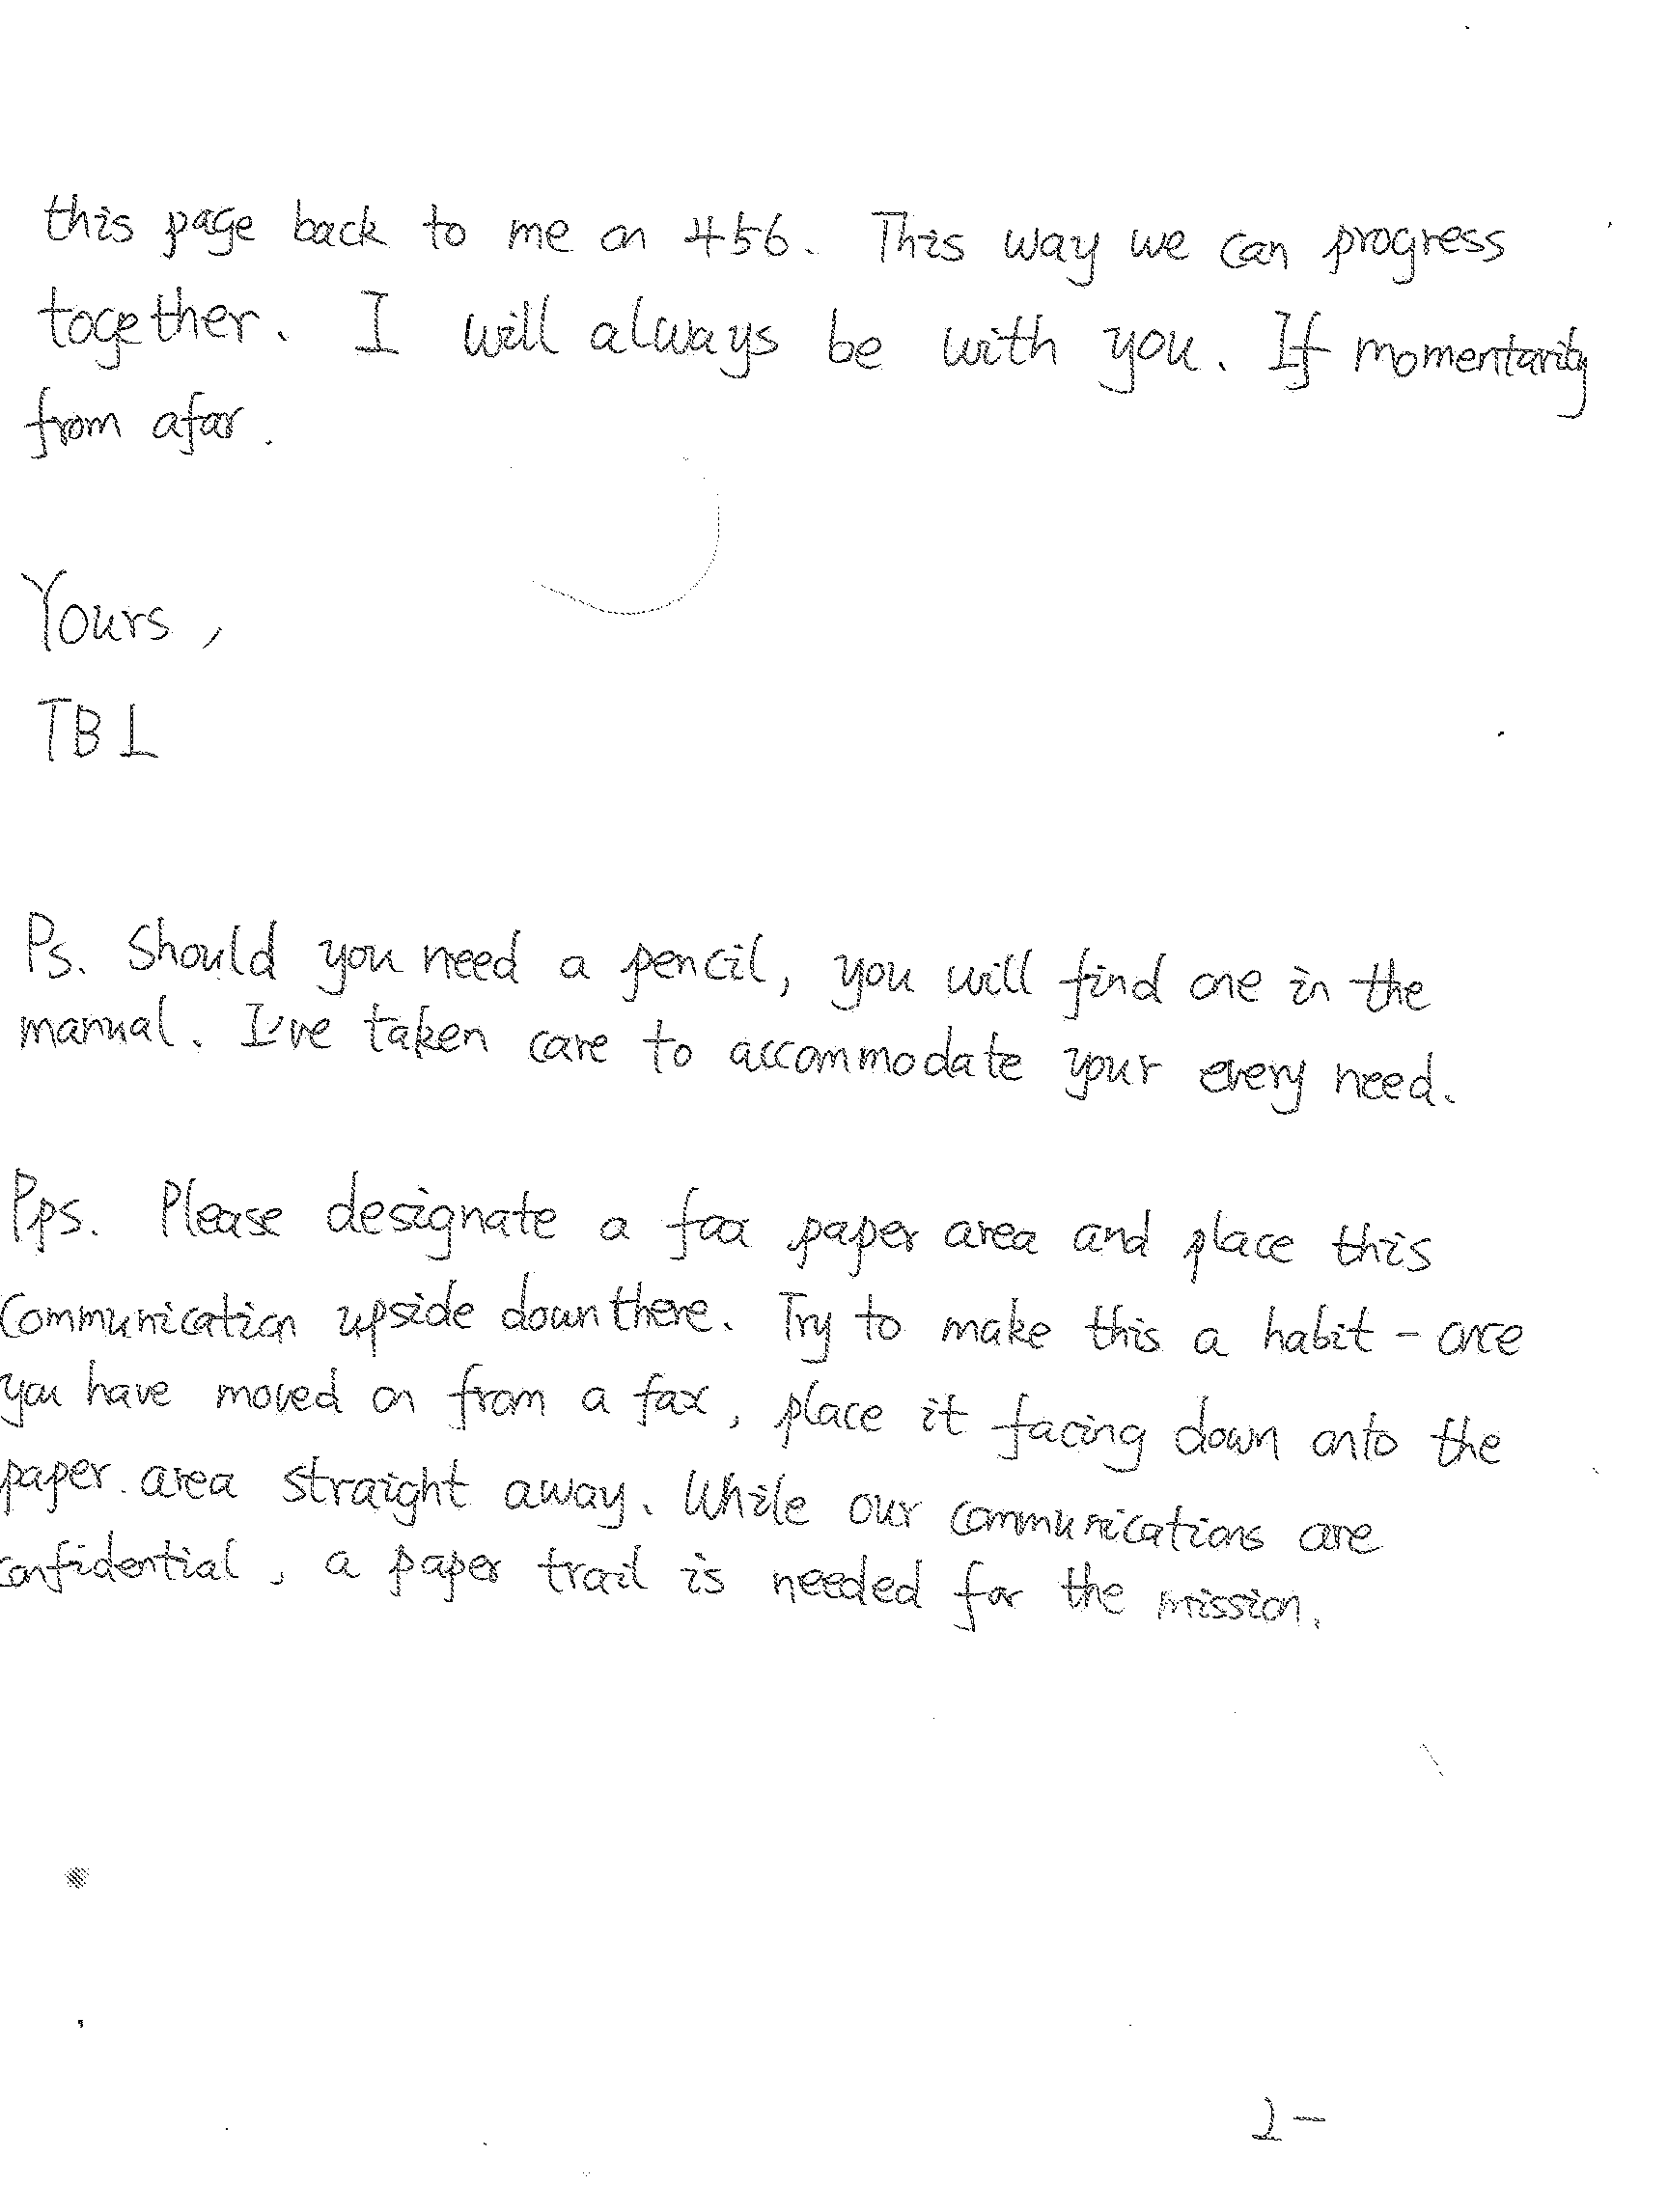 this page back to me on 456. This way we can progress
together. I will always be with you. If momentarily
from afar.
Yours,
TBL
Ps. Should you need a pencil, you will find one in the
manual. I've taken care to accommodate your every need.
Pps. Please designate a fax paper area and place this
communication upside down there. Try to make this a habit - once
you have moved on from a fax, place it facing down onto the
paper area straight away. While our communications are
confidential, a paper trail is needed for the mission.